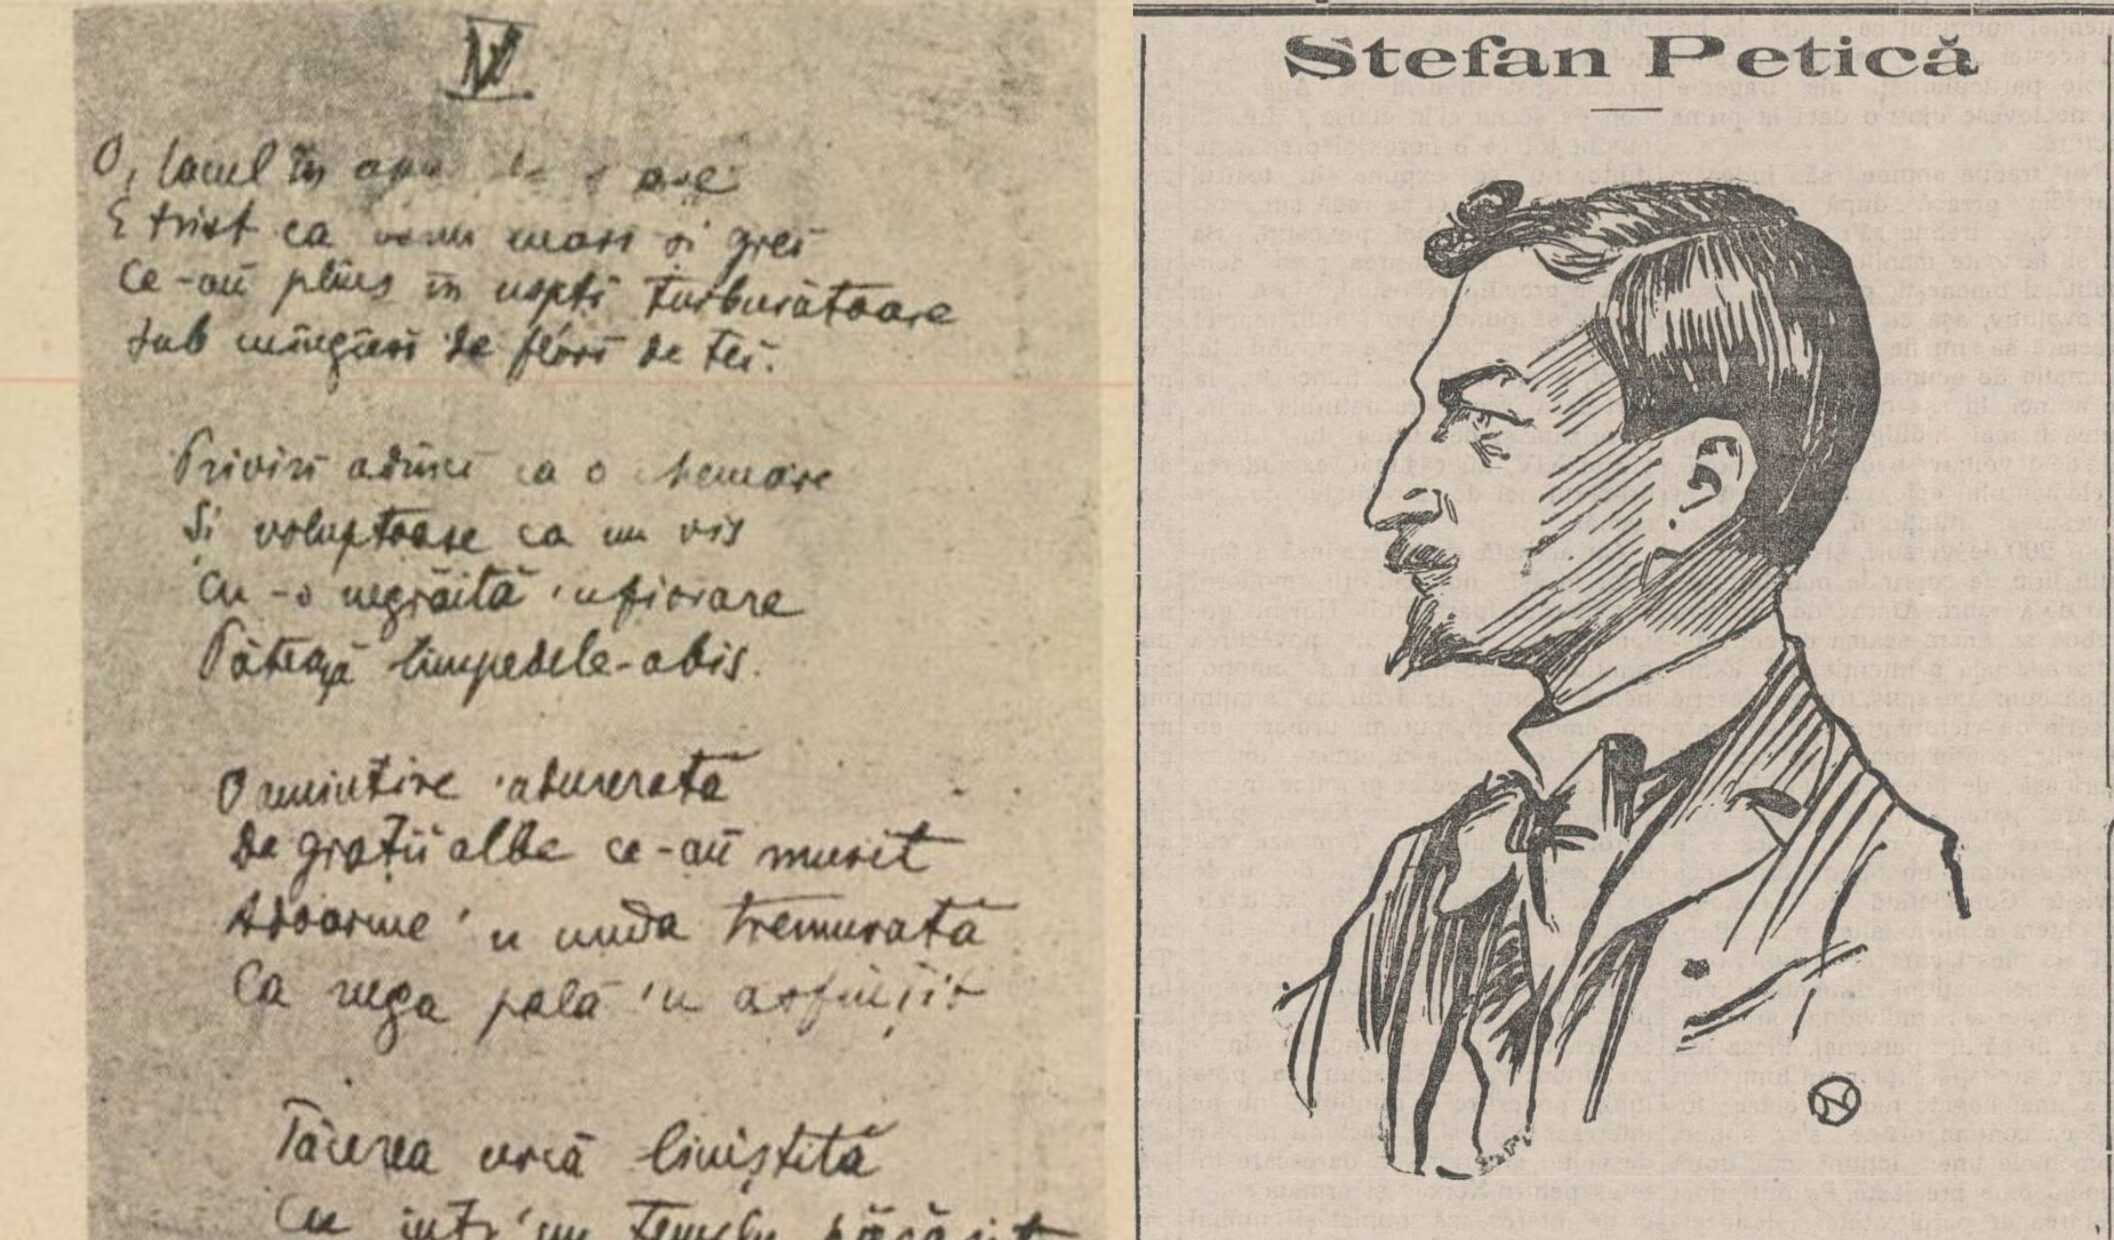 IV
O, lacul în apus de soare
E trist ca ochii mari și grei
Ce-aŭ plîns în nopți turburătoare
Sub ningeri de flori de tei.
Priviri adînci ca o chemare
Și voluptoase ca un vis
Cu-o negrăită 'nfiorare
Pătează limpedele-abis.
O amintire 'ndurerată
De grații albe ce-aŭ murit
Adoarme 'n unda tremurată
Ca ruga pală 'n asfințit
Tăcerea urcă liniștită
Ca intr'un templu părăsit
Stefan Petică